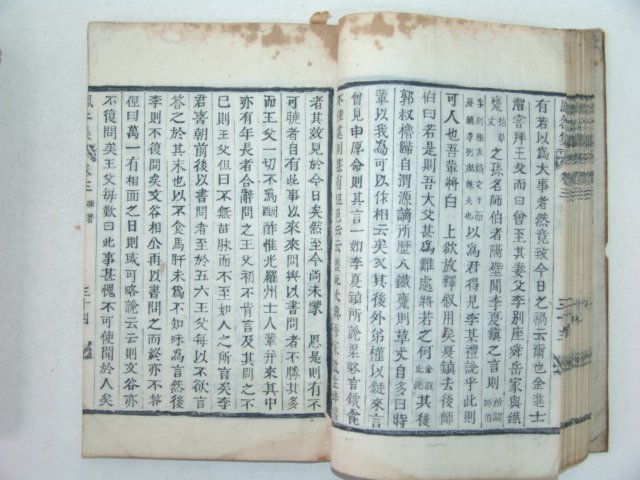 有若以爲大事者然竟致今日之禍云爾也金進士
甯嘗拜王丈而曰曾其妻父李別座舜岳家與鐵
甕丈之孫名師伯者隔壁聞李夏鎭之言則
李別座友婿丈于而
夏鎭李別座妹夫也
以爲君得見李某禮說乎此則
可人也吾輩將白 上欲放釋叙用矣夏鎭去後師
伯曰若是則吾大父甚爲難處將若之何
其後
郭叔櫓歸自渭源謫所歷入鐵甕則草丈自多日時
輩以我爲可以其相云矣其後外弟權以鋌來言
曾見申厚命則其言一如李夏鎭所說
者其效見於今日矣然至今尙未蒙 恩是則有不
可曉者自有此事以來來問與以書問者不勝其多
而王父一切不爲酬酢惟光羅州士人輩幷來其中
亦有年長者合辭問之王父初不肯言及其問之不
已則王父但曰不無苗脉而不至如人之所言矣李
君喜朝前後以書問者至於五六王父每以不欲言
答之於其末也以不食馬肝未爲不知味爲言然後
李則不復問矣文谷相公再以書問之而終亦不答
但曰萬一有相面之日則或可略說云云則文谷亦
不復問矣王父每歎曰此事甚愧不可使聞於人矣
卷三 雜著
三十四